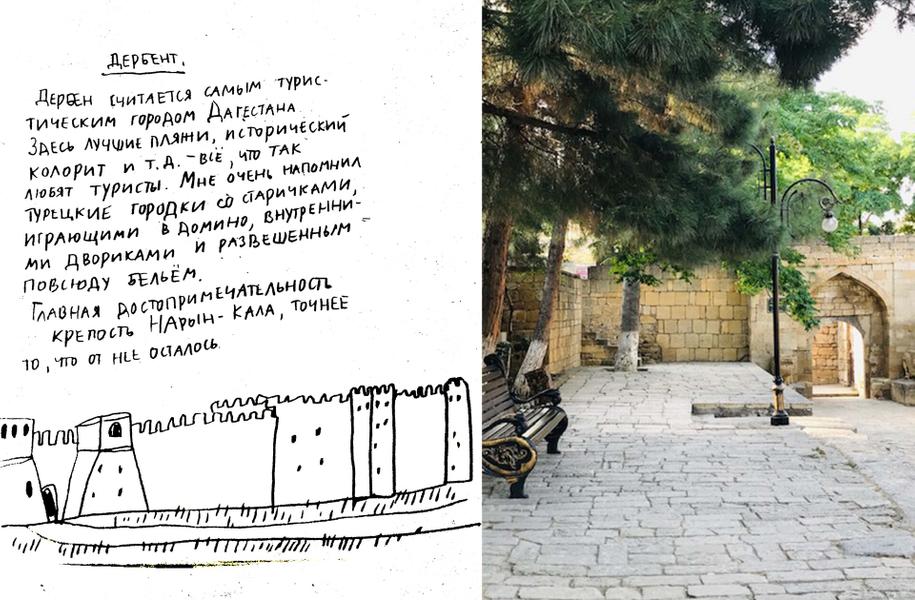 ДЕРБЕНТ.
ДЕРБЕН СЧИТАЕТСЯ САМЫМ ТУРИС-
ТИЧЕСКИМ ГОРОДОМ ДАГЕСТАНА
ЗДЕСЬ ЛУЧШИЕ ПЛЯЖИ, ИСТОРИЧЕСКИЙ
КОЛОРИТ И Т.Д. - ВСЁ, ЧТО ТАК
ЛЮБЯТ ТУРИСТЫ. МНЕ ОЧЕНЬ НАПОМНИЛ
ТУРЕЦКИЕ ГОРОДКИ СО СТАРИЧКАМИ,
ИГРАЮЩИМИ В ДОМИНО, ВНУТРЕННИ-
МИ ДВОРИКАМИ И РАЗВЕШЕННЫМ -
ПОВСЮДУ БЕЛЬЁМ.
ГЛАВНАЯ ДОСТОПРИМЕЧАТЕЛЬНОСТЬ
КРЕПОСТЬ НАРЫН-КАЛА, ТОЧНЕЕ
ТО, ЧТО ОТ НЕЕ ОСТАЛОСЬ.